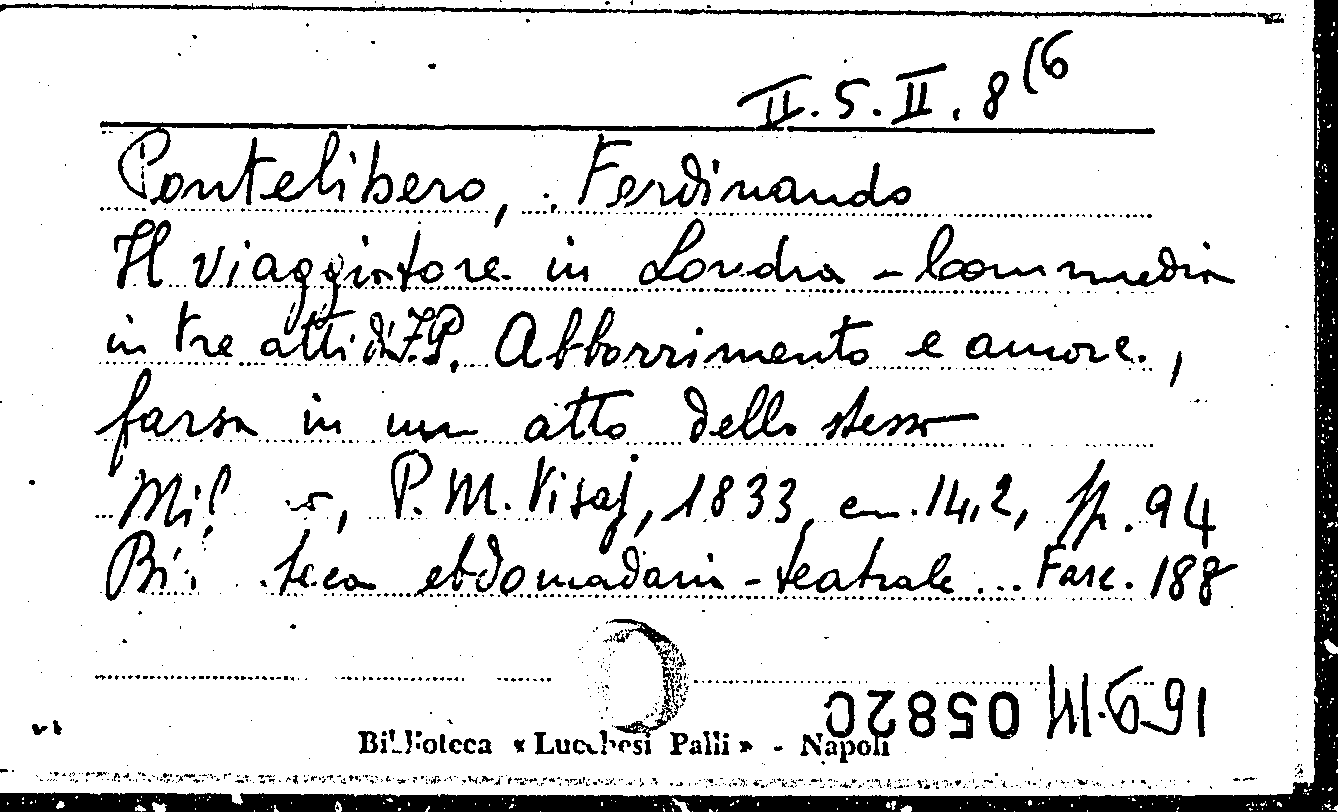 II.5.II.8(6
Pontelibero, Ferdinando
Il viaggiatore in Londra - Commedia
in tre atti di F.P. Abborrimento e amore,
farsa in un atto dello stesso
P. M. Visaj, 1833, cm. 14,2, pp. 94
ebdomadaria-teatrale... Fasc. 188
05820
Biblioteca « Lucchesi Palli » - Napoli